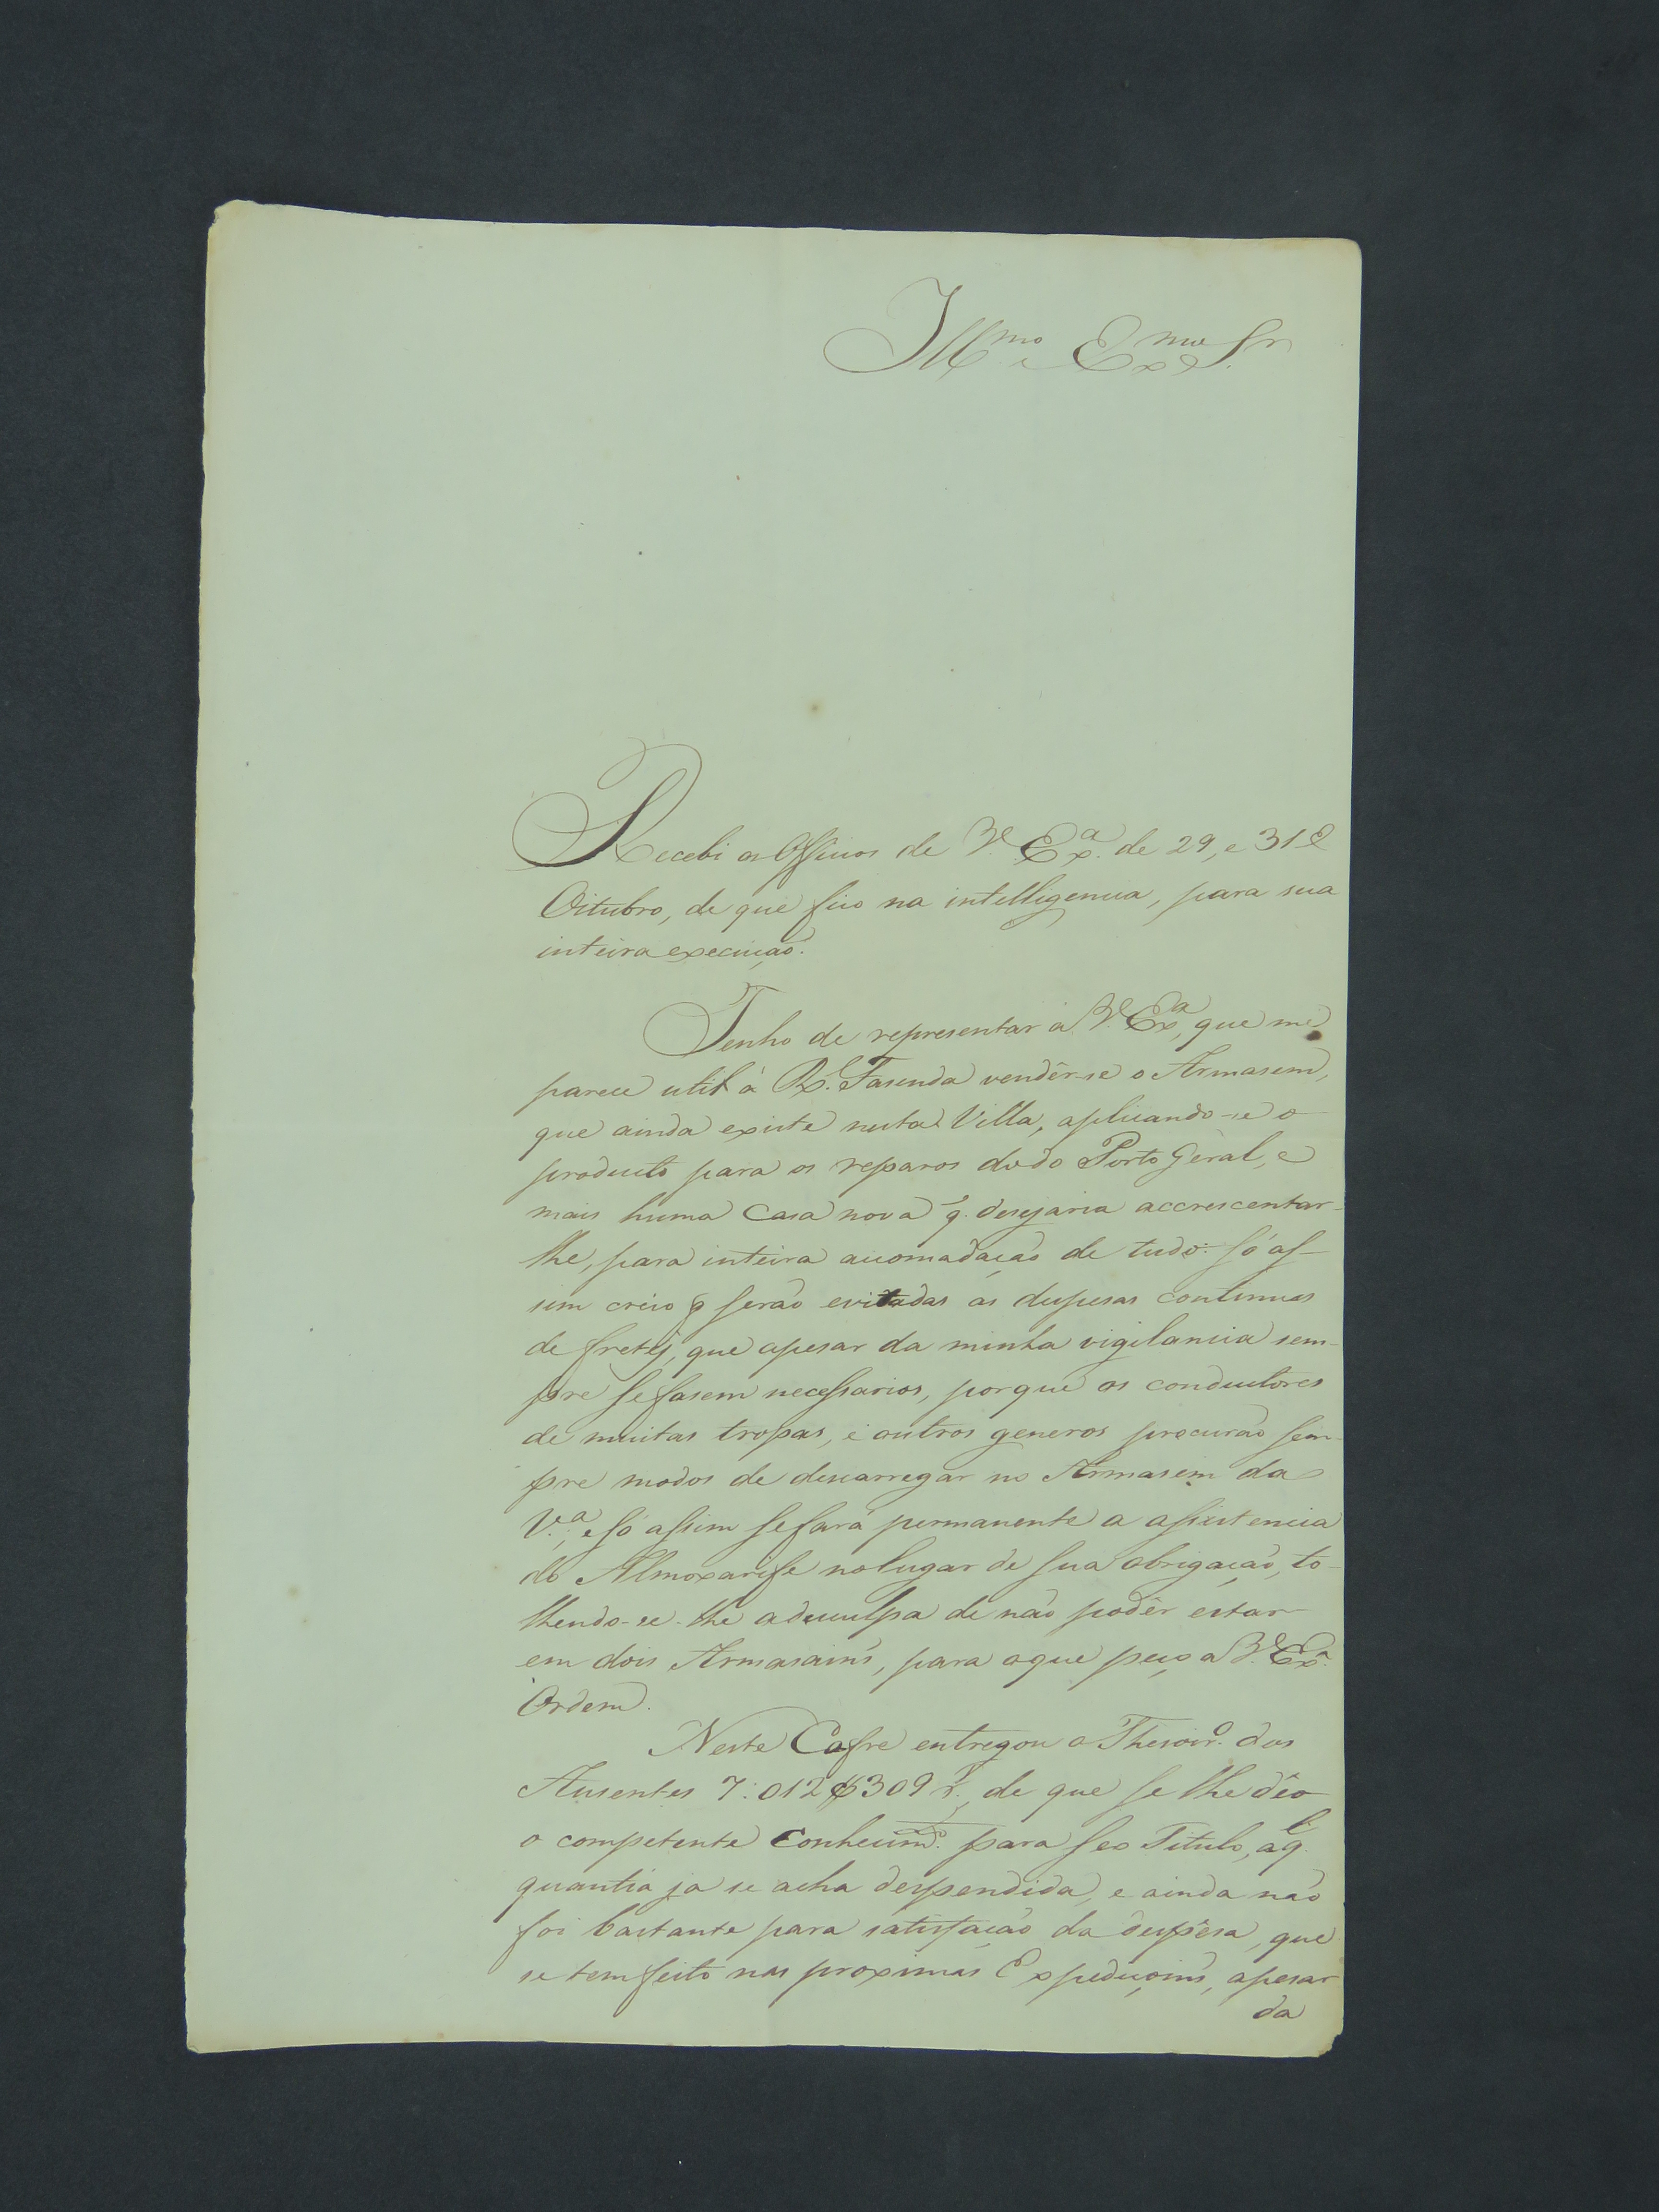 Illmo e Exmo Sr.
Recebi os Officios de V. Exa. de 29, e 31 de
Oitubro, de que fico na intelligencia, para sua
inteira execução.
Tenho de representar a V. Exa, que me
parece util á Rl. Fasenda vendêr-se o Armasem,
que ainda existe nesta Villa, aplicando-se o
producto para os reparos do do Porto Géral, e
mais huma Casa nova q. desejaria accrescentar-
lhe, para inteira accomadação de tudo: só as-
sim creio q serão evitadas as despesas continuas
de fretes, que apesar da minha vigilancia sem-
pre se fasem necessarios, porque os conductores
de muitas tropas, e outros generos procurão sem-
pre modos de descarregar no Armasem da
V.a; e só assim se fará permanente a assistencia
do Almoxarife no lugar de sua obrigação, to-
lhendo-se-lhe a desculpa de não podêr estar
em dois Armasains, para o que peço a V. Exa.
Ordem.
Neste Cofre entregou o Thesoiro. dos
Ausentes 7:012$309 r., de que se lhe dêo
o competente Conhecimto. para seo Titulo, a ql.
quantia ja se acha despendida, e ainda não
foi bastante para satisfação da despêsa, que
se tem feito nas proximas Expediçoins, apesar
da